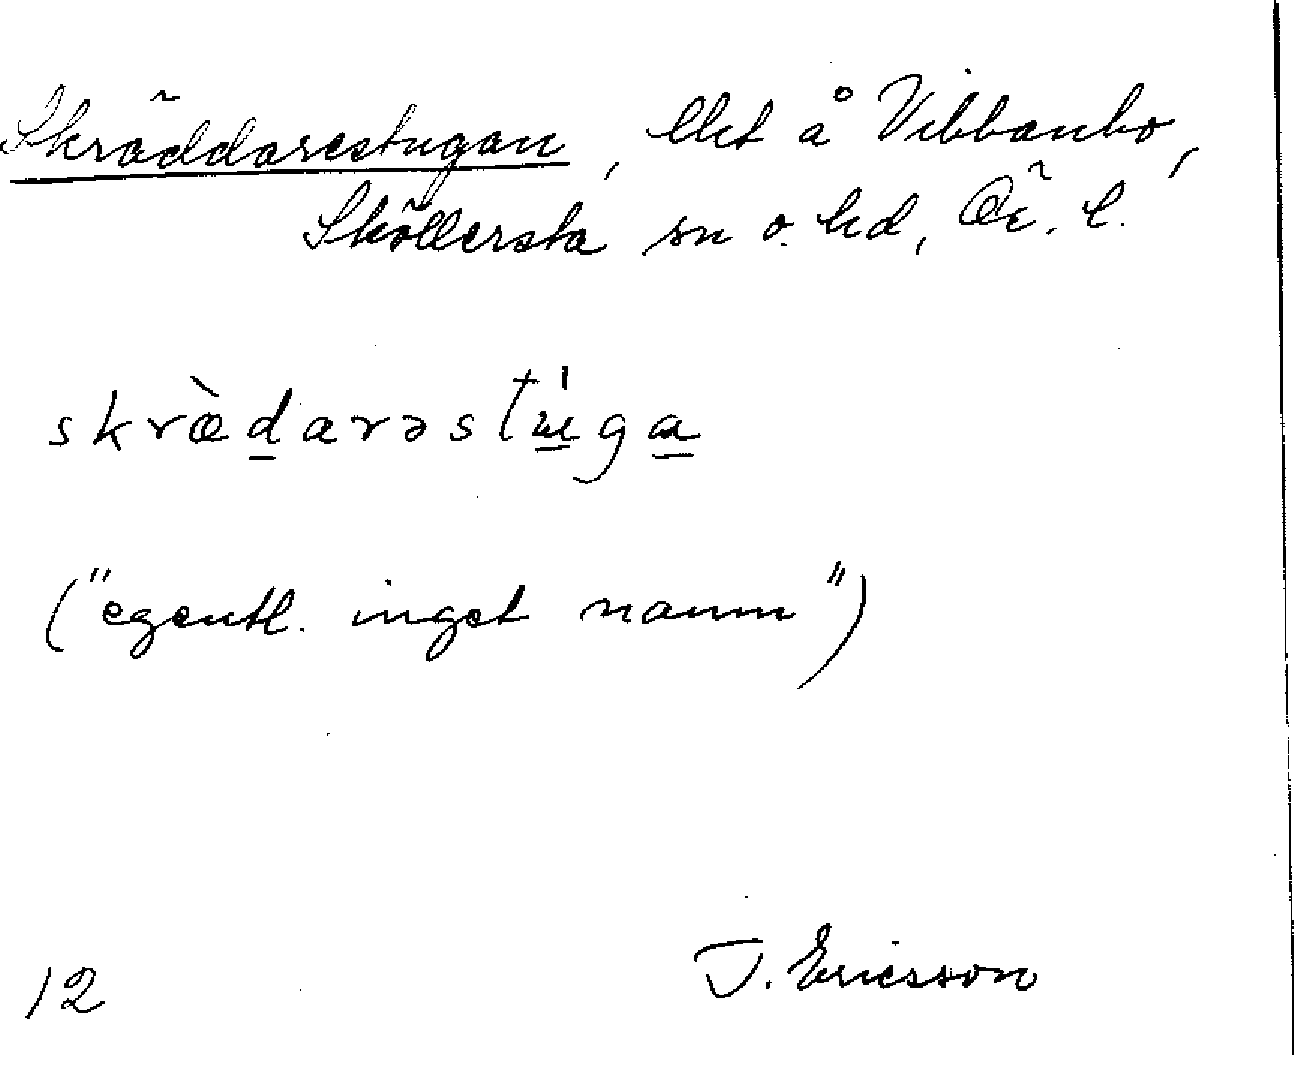 Skräddarestugan, lht å Vibbanbo,
Sköllersta sn o. hd, Ör. l.
skrædarəstuga
("egentl. inget namn")
12
J. Ericsson